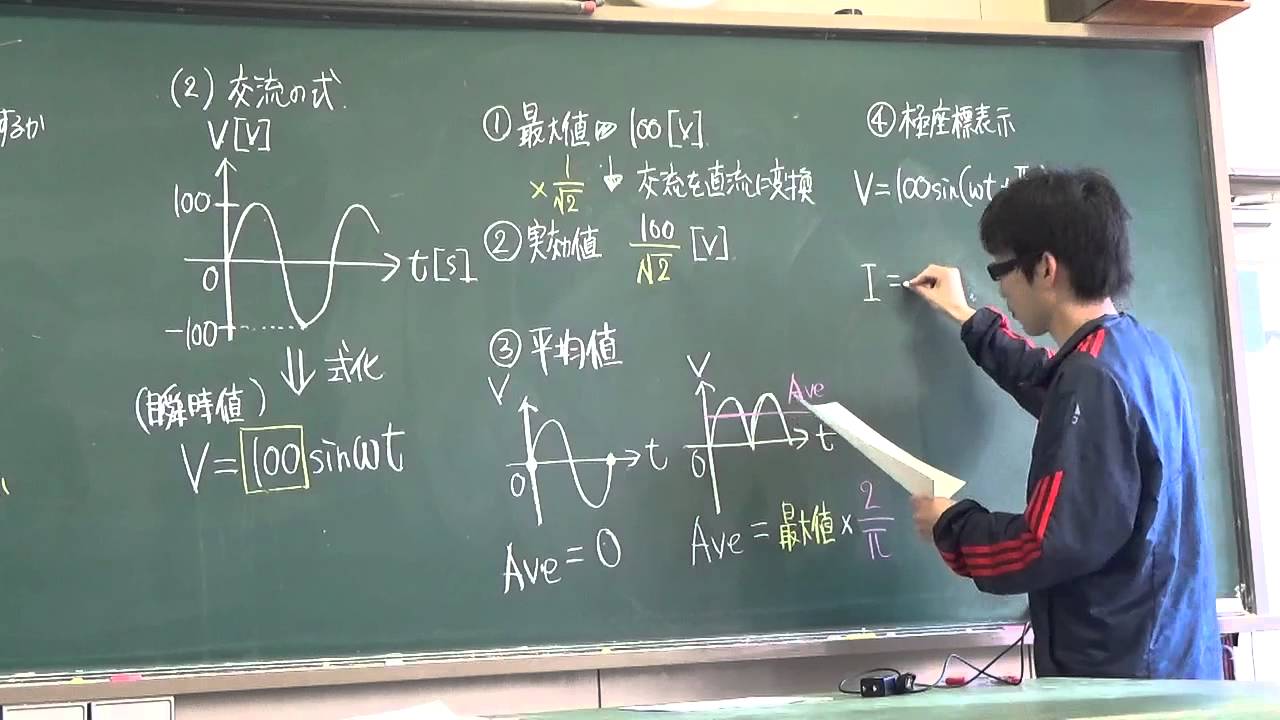 するか
(2) 交流の式
V[V]
100
0
-100
t[s]
⇓ 式化
(瞬時値)
V=100sinωt
① 最大値 ⇨ 100[V]
×1/√2 ↓ 交流を直流に変換
② 実効値 100/√2 [V]
③ 平均値
V
0
t
Ave=0
V
Ave
0
t
Ave=最大値×2/π
④ 極座標表示
V=100sin(ωt+
I=